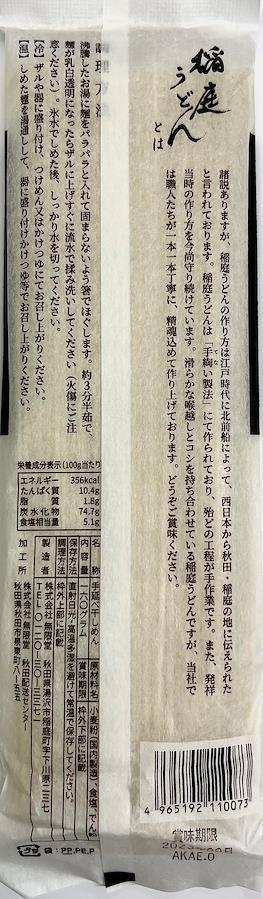 稲庭
うどん
とは
諸説ありますが、稲庭うどんの作り方は江戸時代に北前船によって、西日本から秋田・稲庭の地に伝えられた
と言われております。稲庭うどんは「手綯い製法」にて作られており、殆どの工程が手作業です。また、発祥
当時の作り方を今尚守り続けています。滑らかな喉越しとコシを持ち合わせている稲庭うどんですが、当社で
は職人たちが一本一本丁寧に、精魂込めて作り上げております。どうぞご賞味ください。
調理方法
沸騰したお湯に麺をパラパラと入れて固まらないよう箸でほぐします。約３分半茹で、
麺が乳白透明になったらザルに上げすぐに流水で揉み洗いしてください（火傷にご注
意ください）。氷水でしめた後、しっかり水を切ってください。
【冷】ザルや器に盛り付け、つけめん又はかけつゆにてお召し上がりください。
【温】しめた麺を湯通しして、器に盛り付けかけつゆ等でお召し上がりください。
栄養成分表示(100g当たり)
エネルギー 356kcal
たんぱく質 10.4g
脂質 1.8g
炭水化物 74.7g
食塩相当量 5.1g
名称 手延べ干しめん
原材料名 小麦粉(国内製造)、食塩、でん
内容量 一六〇グラム
賞味期限 枠外下部に記載
保存方法 直射日光・高温多湿を避けて常温で保存してください。
調理方法 枠外上部に記載
製造者 株式会社 無限堂 秋田県湯沢市稲庭町字下川原二三七
TEL〇一二〇-三〇-三三七一
加工所 株式会社 無限堂 秋田配送センター
秋田県秋田市泉東町八-五五
4 965192 110073
賞味期限
AKAE.O
プラ
袋:PP,PE,P